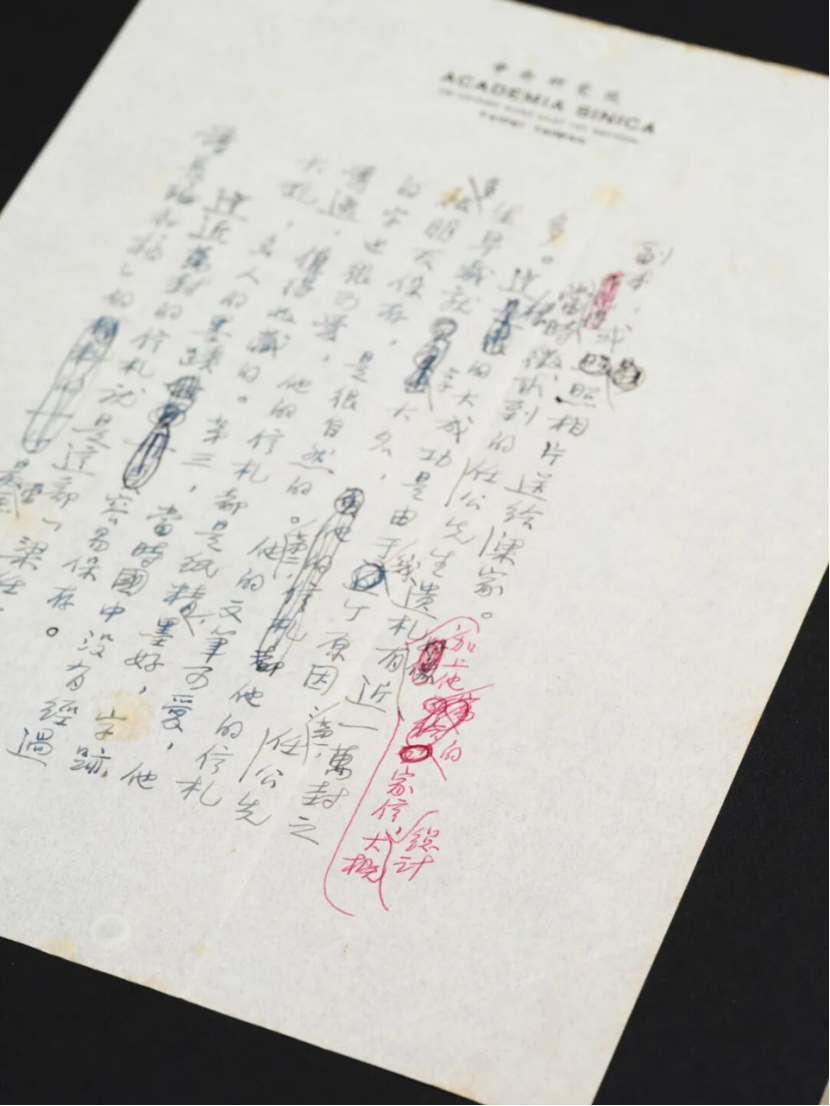 中央研究院
ACADEMIA SINICA
TAIPEI TAIWAN
副本，或照相片送給梁家。
當時徵求到的任公先生遺札有近一萬封之
加上他的家信，總計大概
多。這的大成功是由于幾个原因，第一，任公先
生早歲就享大名，他的信札
保存，是很自然的。第二，他的文筆可愛，他
的字也很可愛，他的信札都是紙精墨好，字跡
秀逸，值得收藏的。第三，當時國中沒有經過
大亂，名人的墨蹟容易保存。
這近萬封的信札就是這部「梁任
年譜初稿」的